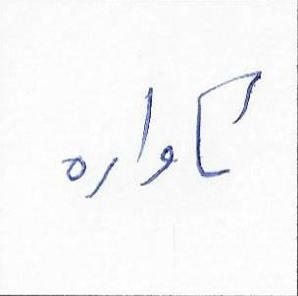 گواره